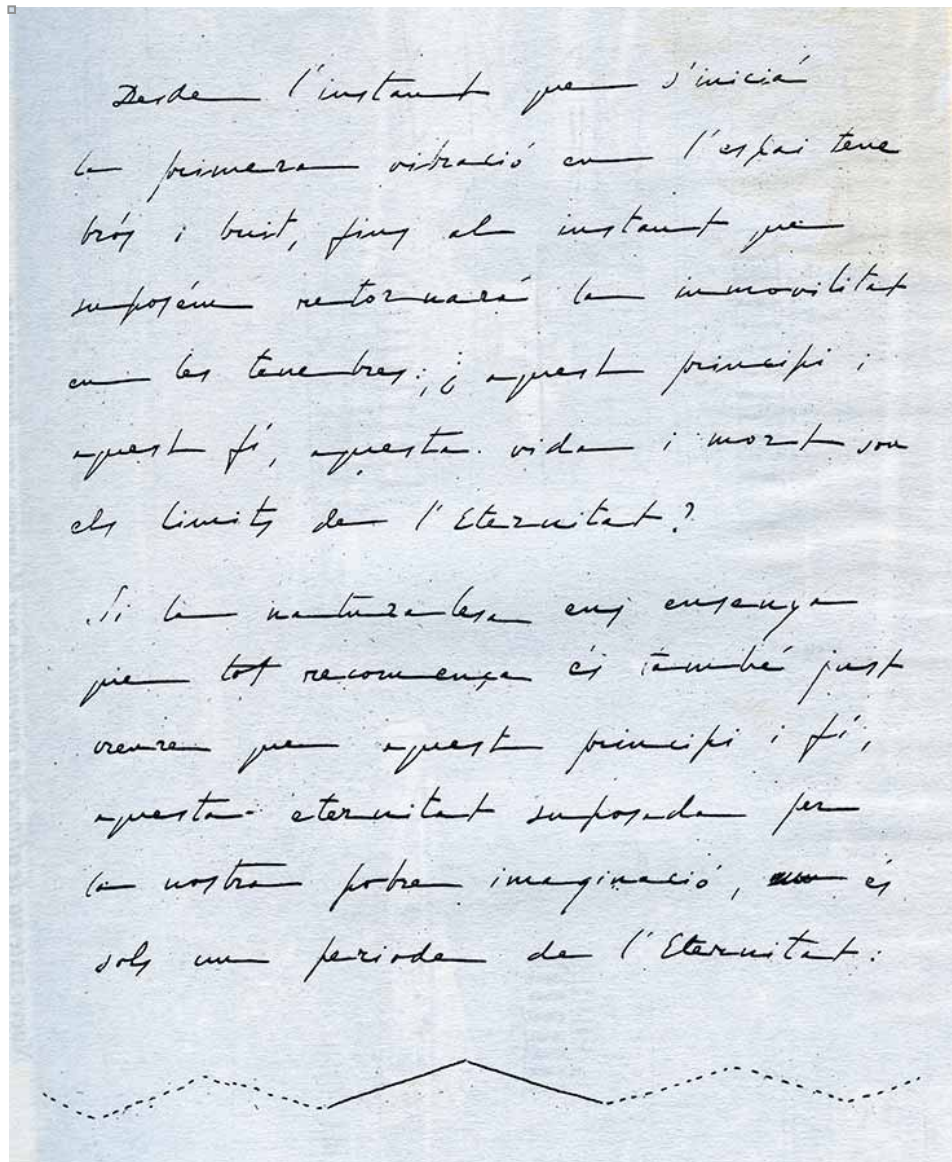 Desde l'instant que s'inicià
la primera vibració en l'espai tene
brós i buit, fins al instant que
suposém retornará la immovilitat
en les tenebres: ¿aquest principi i
aquest fí, aquesta vida i mort son
els limits de l'Eternitat?
Si la naturalesa ens ensenya
que tot recomença és també just
creure que aquest principi i fí,
aquesta eternitat suposada per
la nostra pobre imaginació, és
sols un periode de l'Eternitat: